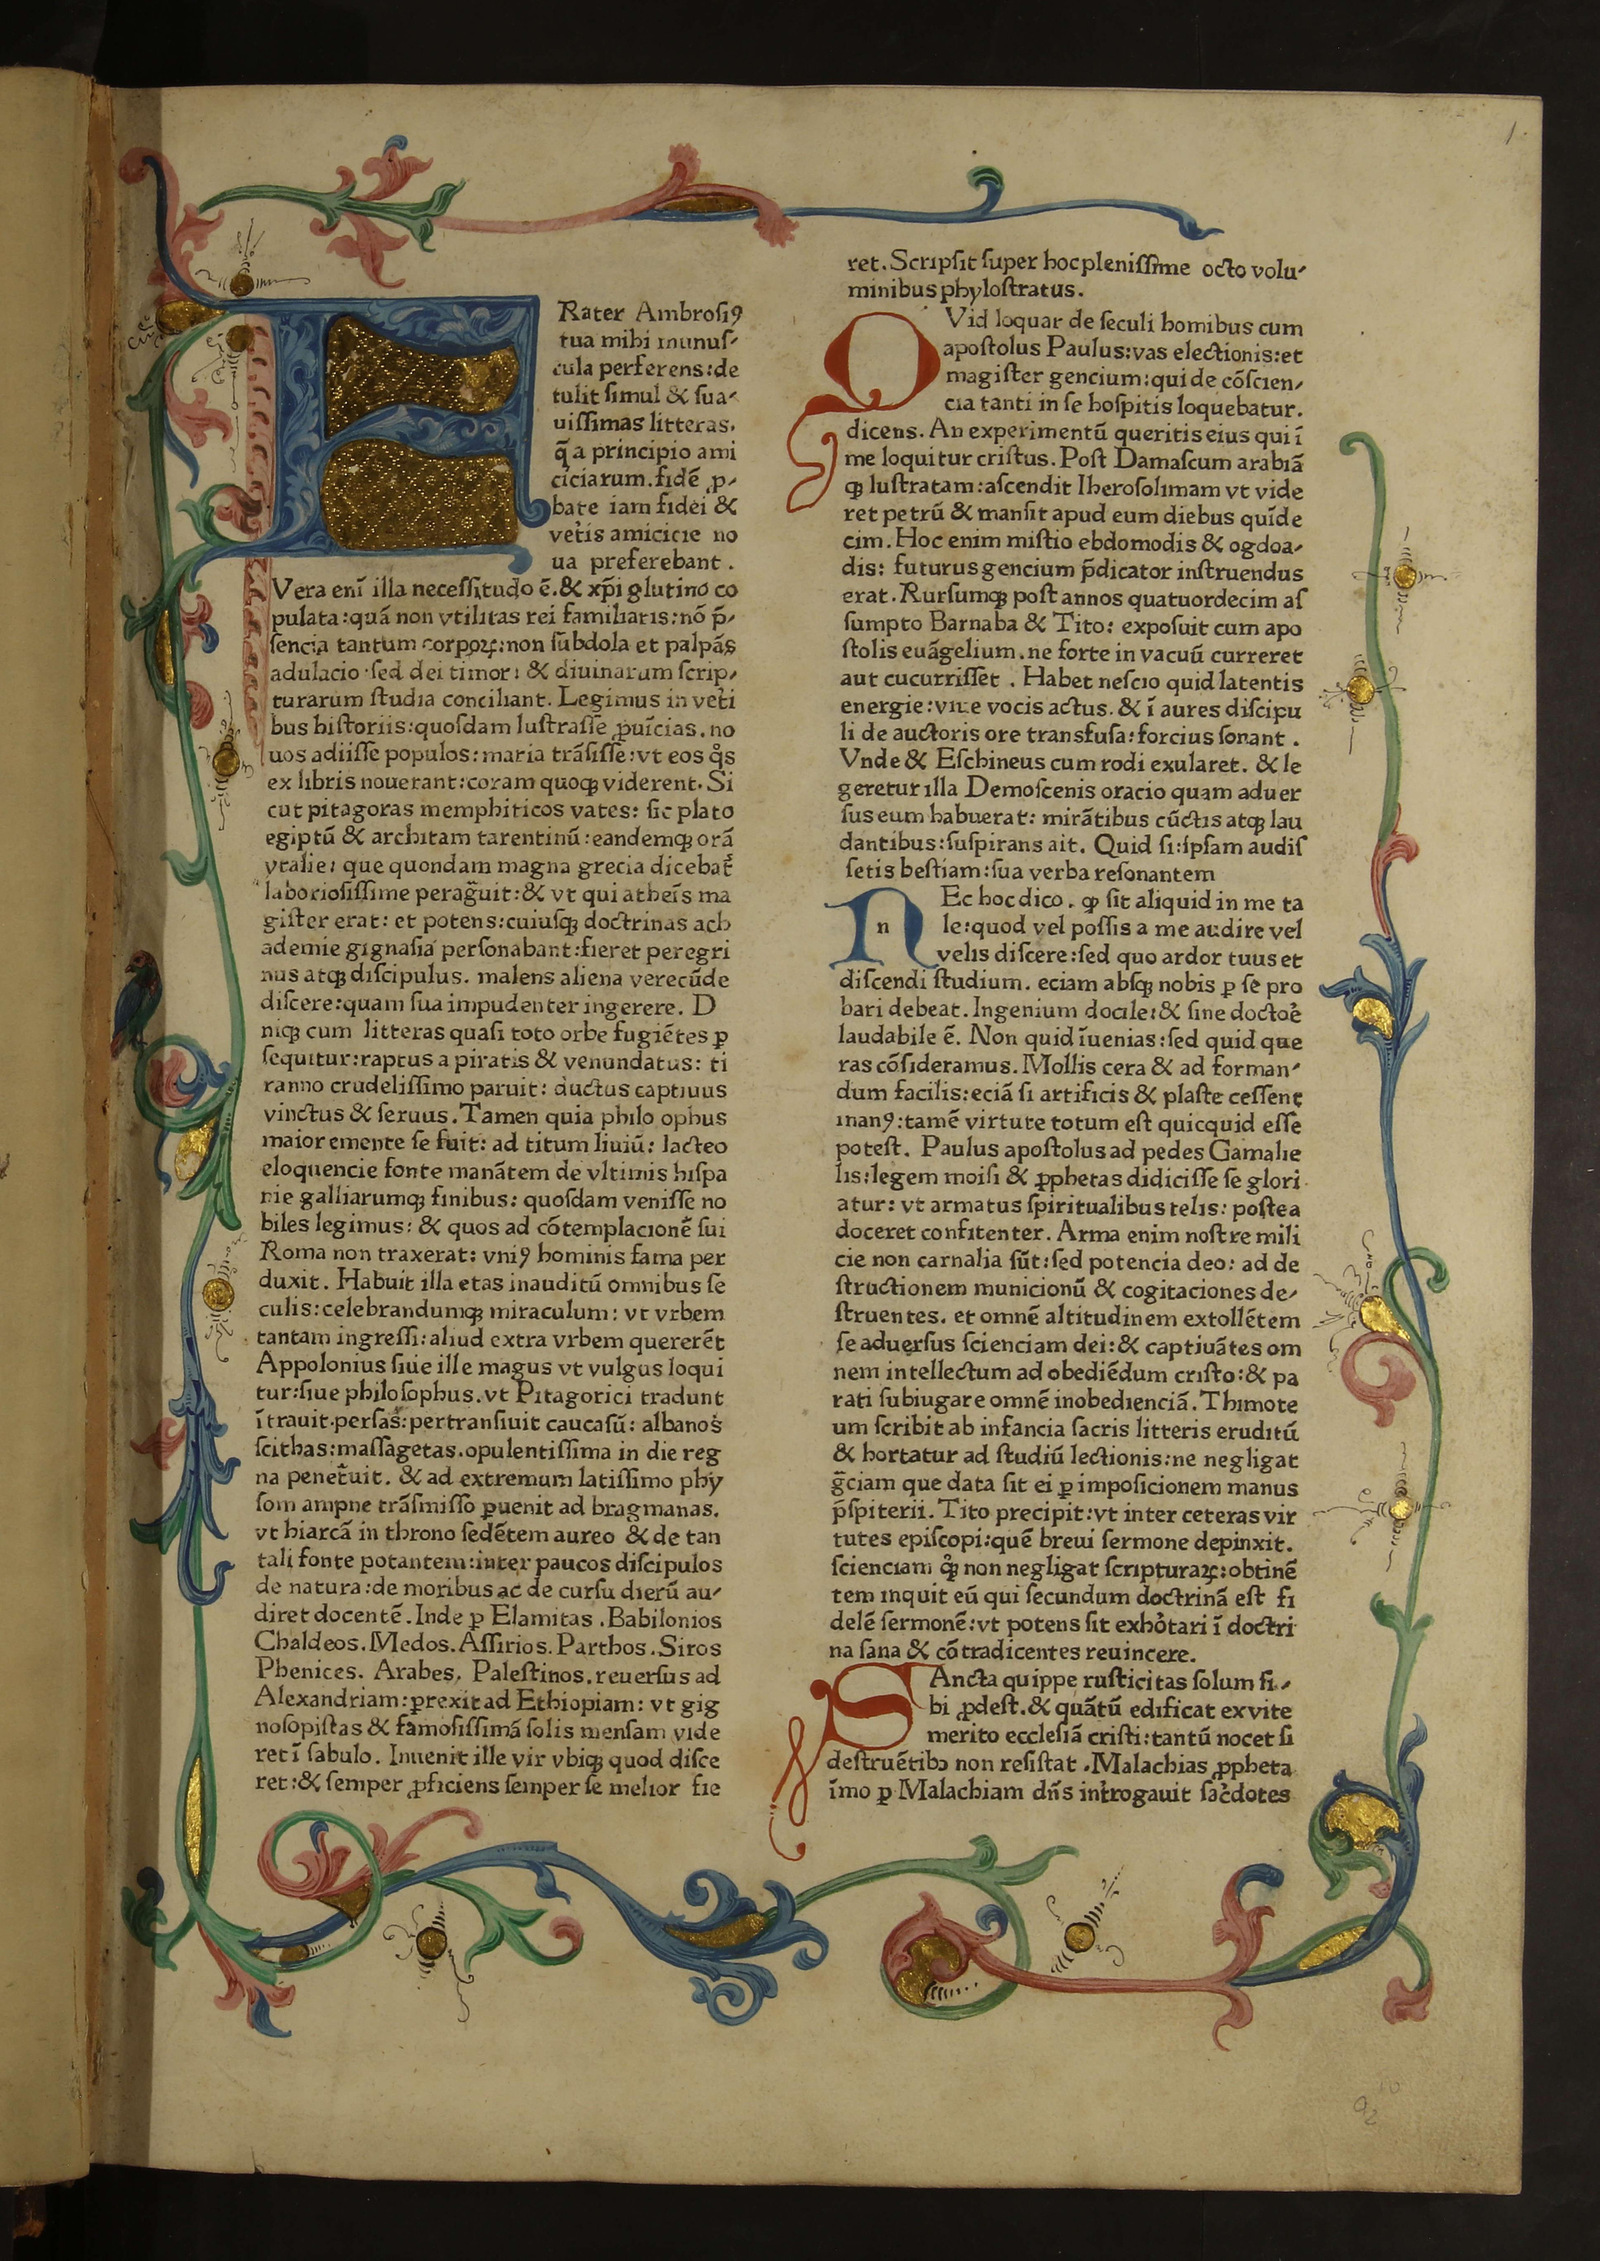 1.
F
Rater Ambrosiꝰ
tua mihi munuſ⸗
cula perferens:de
tulit ſimul & ſua⸗
uiſſimas litteras.
q̄ a principio ami
ciciarum.fidē ꝓ⸗
bate iam fidei &
vet̉is amicicie no
ua preferebant.
Vera enī illa neceſſitudo ē.& xp̄i glutino co
pulata:quā non vtilitas rei familiaris:nō p̄⸗
ſencia tantum corpoꝝ:non ſubdola et palpās
adulacio·ſed dei timor: & diuinarum ſcrip⸗
turarum ſtudia conciliant. Legimus in vet̉i
bus hiſtoriis:quoſdam luſtraſſe ꝓuīcias.no
uos adiiſſe populos:maria trāſiſſe:vt eos qͦs
ex libris nouerant:coram quoqꝫ viderent. Si
cut pitagoras memphiticos vates: ſic plato
egiptū & architam tarentinū:eandemqꝫ orā
ytalie: que quondam magna grecia dicebat᷑
laborioſiſſime peragᷓuit:& vt qui atheīs ma
giſter erat: et potens:cuiuſqꝫ doctrinas ach
ademie gignaſia perſonabant:fieret peregri
nus atqꝫ diſcipulus. malens aliena verecūde
diſcere:quam ſua impudenter ingerere. D
niqꝫ cum litteras quaſi toto orbe fugiētes ꝑ
ſequitur:raptus a piratis & venundatus: ti
ranno crudeliſſimo paruit: ductus captiuus
vinctus & ſeruus. Tamen quia philo ophus
maior emente ſe fuit: ad titum liuiū: lacteo
eloquencie fonte manātem de vltimis hiſpa
nie galliarumqꝫ finibus: quoſdam veniſſe no
biles legimus: & quos ad cōtemplacionē ſui
Roma non traxerat: vniꝰ hominis fama per
duxit. Habuit illa etas inauditū omnibus ſe
culis:celebrandumqꝫ miraculum: vt vrbem
tantam ingreſſi:aliud extra vrbem quererēt
Appolonius ſiue ille magus vt vulgus loqui
tur:ſiue philoſophus.vt Pitagorici tradunt
ītrauit·perſas:pertranſiuit caucaſū: albanos
ſcithas:maſſagetas.opulentiſſima in die reg
na penet᷑uit. & ad extremum latiſſimo phy
ſom ampne trāſmiſſo ꝑuenit ad bragmanas.
vt hiarcā in throno ſedētem aureo & de tan
tali fonte potantem:inter paucos diſcipulos
de natura:de moribus ac de curſu dierū au⸗
diret docentē. Inde ꝑ Elamitas .Babilonios
Chaldeos. Medos. Aſſirios. Parthos .Siros
Phenices. Arabes. Paleſtinos. reuerſus ad
Alexandriam:ꝑrexit ad Ethiopiam: vt gig
noſopiſtas & famoſiſſimā ſolis menſam vide
ret ī ſabulo. Inuenit ille vir vbiqꝫ quod diſce
ret:& ſemper ꝓficiens ſemper ſe melior fie
ret. Scripſit ſuper hocpleniſſime octo volu⸗
minibus phyloſtratus.
QVid loquar de ſeculi homibus cum
apoſtolus Paulus:vas electionis:et
magiſter gencium:qui de cōſcien⸗
cia tanti in ſe hoſpitis loquebatur.
dicens. An experimentū queritis eius qui ī
me loquitur criſtus. Poſt Damaſcum arabiā
qꝫ luſtratam:aſcendit Iheroſolimam vt vide
ret petrū & manſit apud eum diebus quīde
cim. Hoc enim miſtio ebdomodis & ogdoa⸗
dis: futurus gencium p̄dicator inſtruendus
erat. Rurſumqꝫ poſt annos quatuordecim aſ
ſumpto Barnaba & Tito: expoſuit cum apo
ſtolis euāgelium.ne forte in vacuū curreret
aut cucurriſſet . Habet neſcio quid latentis
energie:viue vocis actus. & ī aures diſcipu
li de auctoris ore transfuſa:forcius ſonant .
Vnde & Eſchineus cum rodi exularet. & le
geretur illa Demoſcenis oracio quam aduer
ſus eum habuerat: mirātibus cūctis atqꝫ lau
dantibus:ſuſpirans ait. Quid ſi:ipſam audiſ
ſetis beſtiam:ſua verba reſonantem
n
NEc hoc dico. ꝙ ſit aliquid in me ta
le:quod vel poſſis a me audire vel
velis diſcere:ſed quo ardor tuus et
diſcendi ſtudium. eciam abſqꝫ nobis ꝑ ſe pro
bari debeat. Ingenium docile:& ſine doctoē
laudabile ē. Non quid īuenias:ſed quid que
ras cōſideramus. Mollis cera & ad forman⸗
dum facilis:eciā ſi artificis & plaſte ceſſent
manꝰ:tamē virtute totum eſt quicquid eſſe
poteſt. Paulus apoſtolus ad pedes Gamalie
lis:legem moiſi & ꝓphetas didiciſſe ſe glori
atur: vt armatus ſpiritualibus telis: poſtea
doceret confitenter. Arma enim noſtre mili
cie non carnalia ſūt:ſed potencia deo: ad de
ſtructionem municionū & cogitaciones de⸗
ſtruentes. et omnē altitudinem extollētem
ſe aduerſus ſcienciam dei:& captiuātes om
nem intellectum ad obediēdum criſto:& pa
rati ſubiugare omnē inobedienciā. Thimote
um ſcribit ab infancia ſacris litteris eruditū
& hortatur ad ſtudiū lectionis:ne negligat
gᷓciam que data ſit ei ꝑ impoſicionem manus
p̄ſpiterii. Tito precipit:vt inter ceteras vir
tutes epiſcopi:quē breui ſermone depinxit.
ſcienciam qͦꝫ non negligat ſcripturaꝝ:obtinē
tem inquit eū qui ſecundum doctrinā eſt fi
delē ſermonē:vt potens ſit exho̓tari ī doctri
na ſana & cōtradicentes reuincere.
SAncta quippe ruſticitas ſolum ſi⸗
bi ꝓdeſt.& quātū edificat ex vite
merito eccleſiā criſti:tantū nocet ſi
deſtruētibꝰ non reſiſtat .Malachias ꝓpheta
īmo ꝑ Malachiam dn̄s int̉rogauit ſac̉dotes